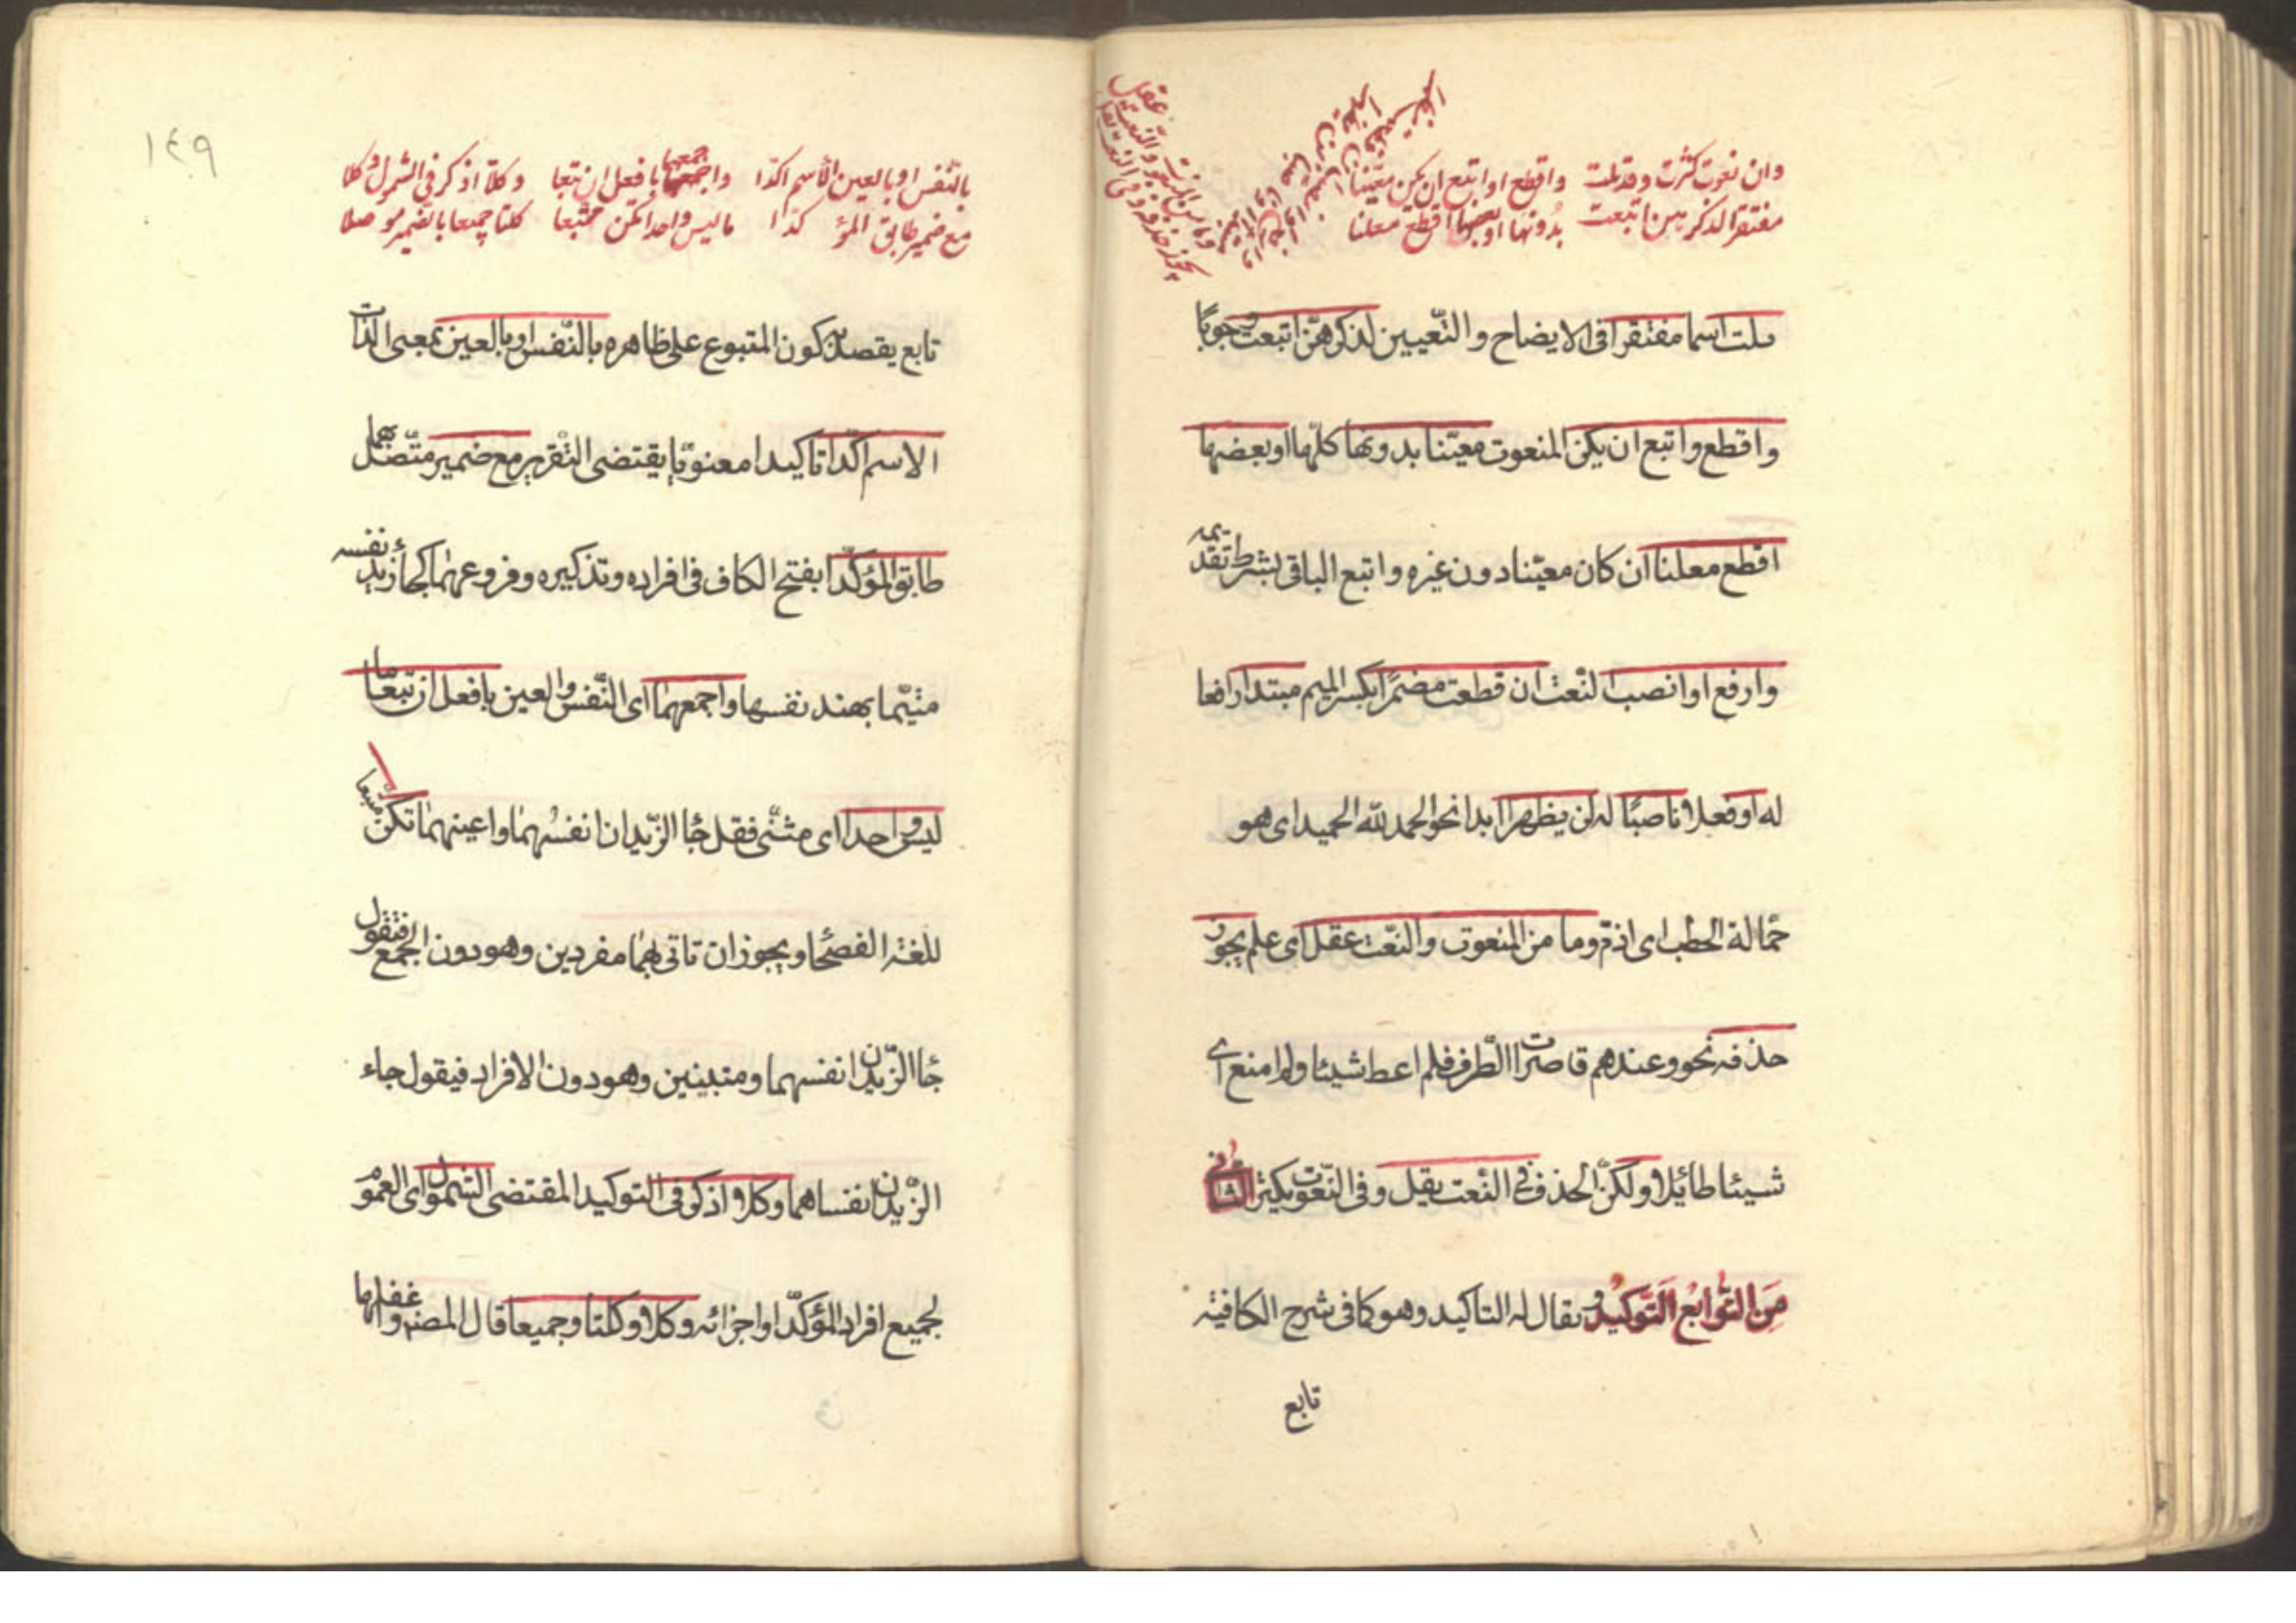 وان نعوت كثرت وقد تلت واقطع او اتبع ان يكن معينا
مفتقرا لذكرهن اتبعت بدونها او بعضها اقطع معلنا
وارفع او انصب ان قطعت مضمرا
مبتدأ او ناصبا لن يظهرا
وما من المنعوت والنعت عقل
يجوز حذفه وفى النعت يقل
تلت اسما مفتقرا فى الايضاح والتّعيين لذكرهنّ اتبعت وجوبًا
واقطع واتبع ان يكن المنعوت معيّنا بدونها كلّها او بعضها
اقطع معلنا ان كان معيّنا دون غيره واتبع الباقى بشرط تقديمه
وارفع او انصب النّعت ان قطعت مضمرًا بكسر الميم مبتدا رافعا
له او فعلا ناصبًا له لن يظهرا ابدا نحو الحمد لله الحميد اى هو
حمّالة الحطب اى اذمّ وما من المنعوت والنّعت عقل اى علم يجوز
حذفه نحو وعندهم قاصرات الطّرف فلم اعط شيئا ولم امنع اى
شيئا طائلا ولكنّ الحذف فى النّعت يقل وفى المنعوت يكثر الثانى
من التّوابع التّوكيد ويقال له التاكيد وهو كما فى شرح الكافية
تابع
١٤٩
بالنّفس او بالعين الاسم اكّدا واجمعهما بافعل ان تبعا وكلّا اذكر فى الشمول وكلا
مع ضمير طابق المؤكّدا ما ليس واحدا تكن متّبعا كلتا جميعا بالضمير موصلا
تابع يقصد به كون المتبوع على ظاهره بالنّفس او بالعين بمعنى الذّات
الاسم اكّدا تاكيدا معنويّا يقتضى التّقرير مع ضمير متّصل بهما
طابق المؤكّدا بفتح الكاف فى افراده وتذكيره وفروعهما كجاء زيد نفسه
متيّما بهند نفسها واجمعهما اى النّفس والعين بافعل ان تبعا ما
ليس واحدا اى مثنّى فقل جاء الزّيدان انفسهما واعينهما تكن متّبعا
للغة الفصحا ويجوز ان تاتى بهما مفردين وهو دون الجمع فتقول
جاء الزّيدان نفسهما ومثنيين وهو دون الافراد فيقول جاء
الزّيدان نفساهما وكلا اذكر فى التوكيد المقتضى الشمول اى العموم
لجميع افراد المؤكّد او اجزائه وكلا وكلتا وجميعا قال المصنف واغفلها